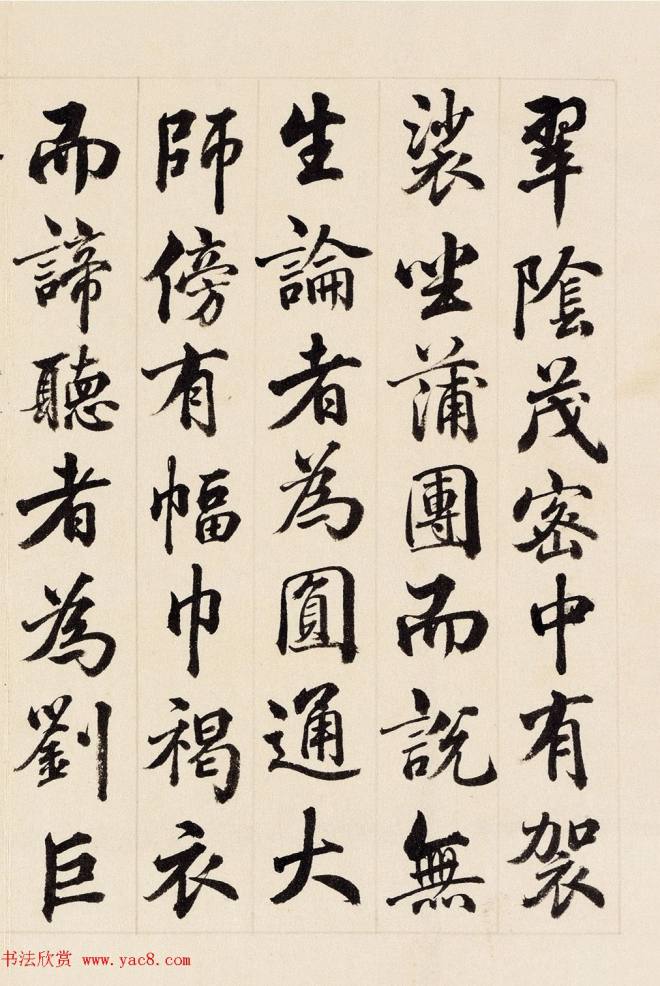 翠陰茂密中有袈
裟坐蒲團而說無
生論者為圓通大
師傍有幅巾褐衣
而諦聽者為劉巨
书法欣赏 www.yac8.com